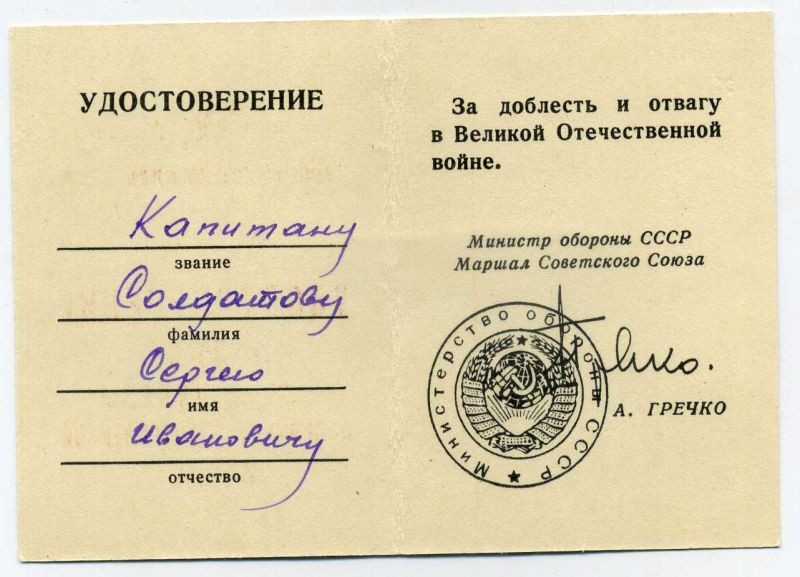 УДОСТОВЕРЕНИЕ
Капитану
звание
Солдатову
фамилия
Сергею
имя
Ивановичу
отчество
За доблесть и отвагу
в Великой Отечественной
войне.
Министр обороны СССР
Маршал Советского Союза
Министерство обороны СССР
А. ГРЕЧКО